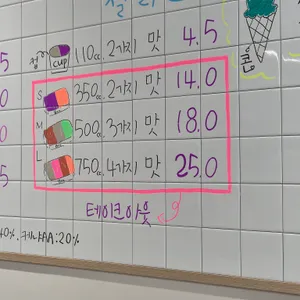 cup 110cc 2가지 맛 4.5
S 350cc 2가지 맛 14.0
M 500cc 3가지 맛 18.0
L 750cc 4가지 맛 25.0
테이크아웃
40%. 케냐AA:20%